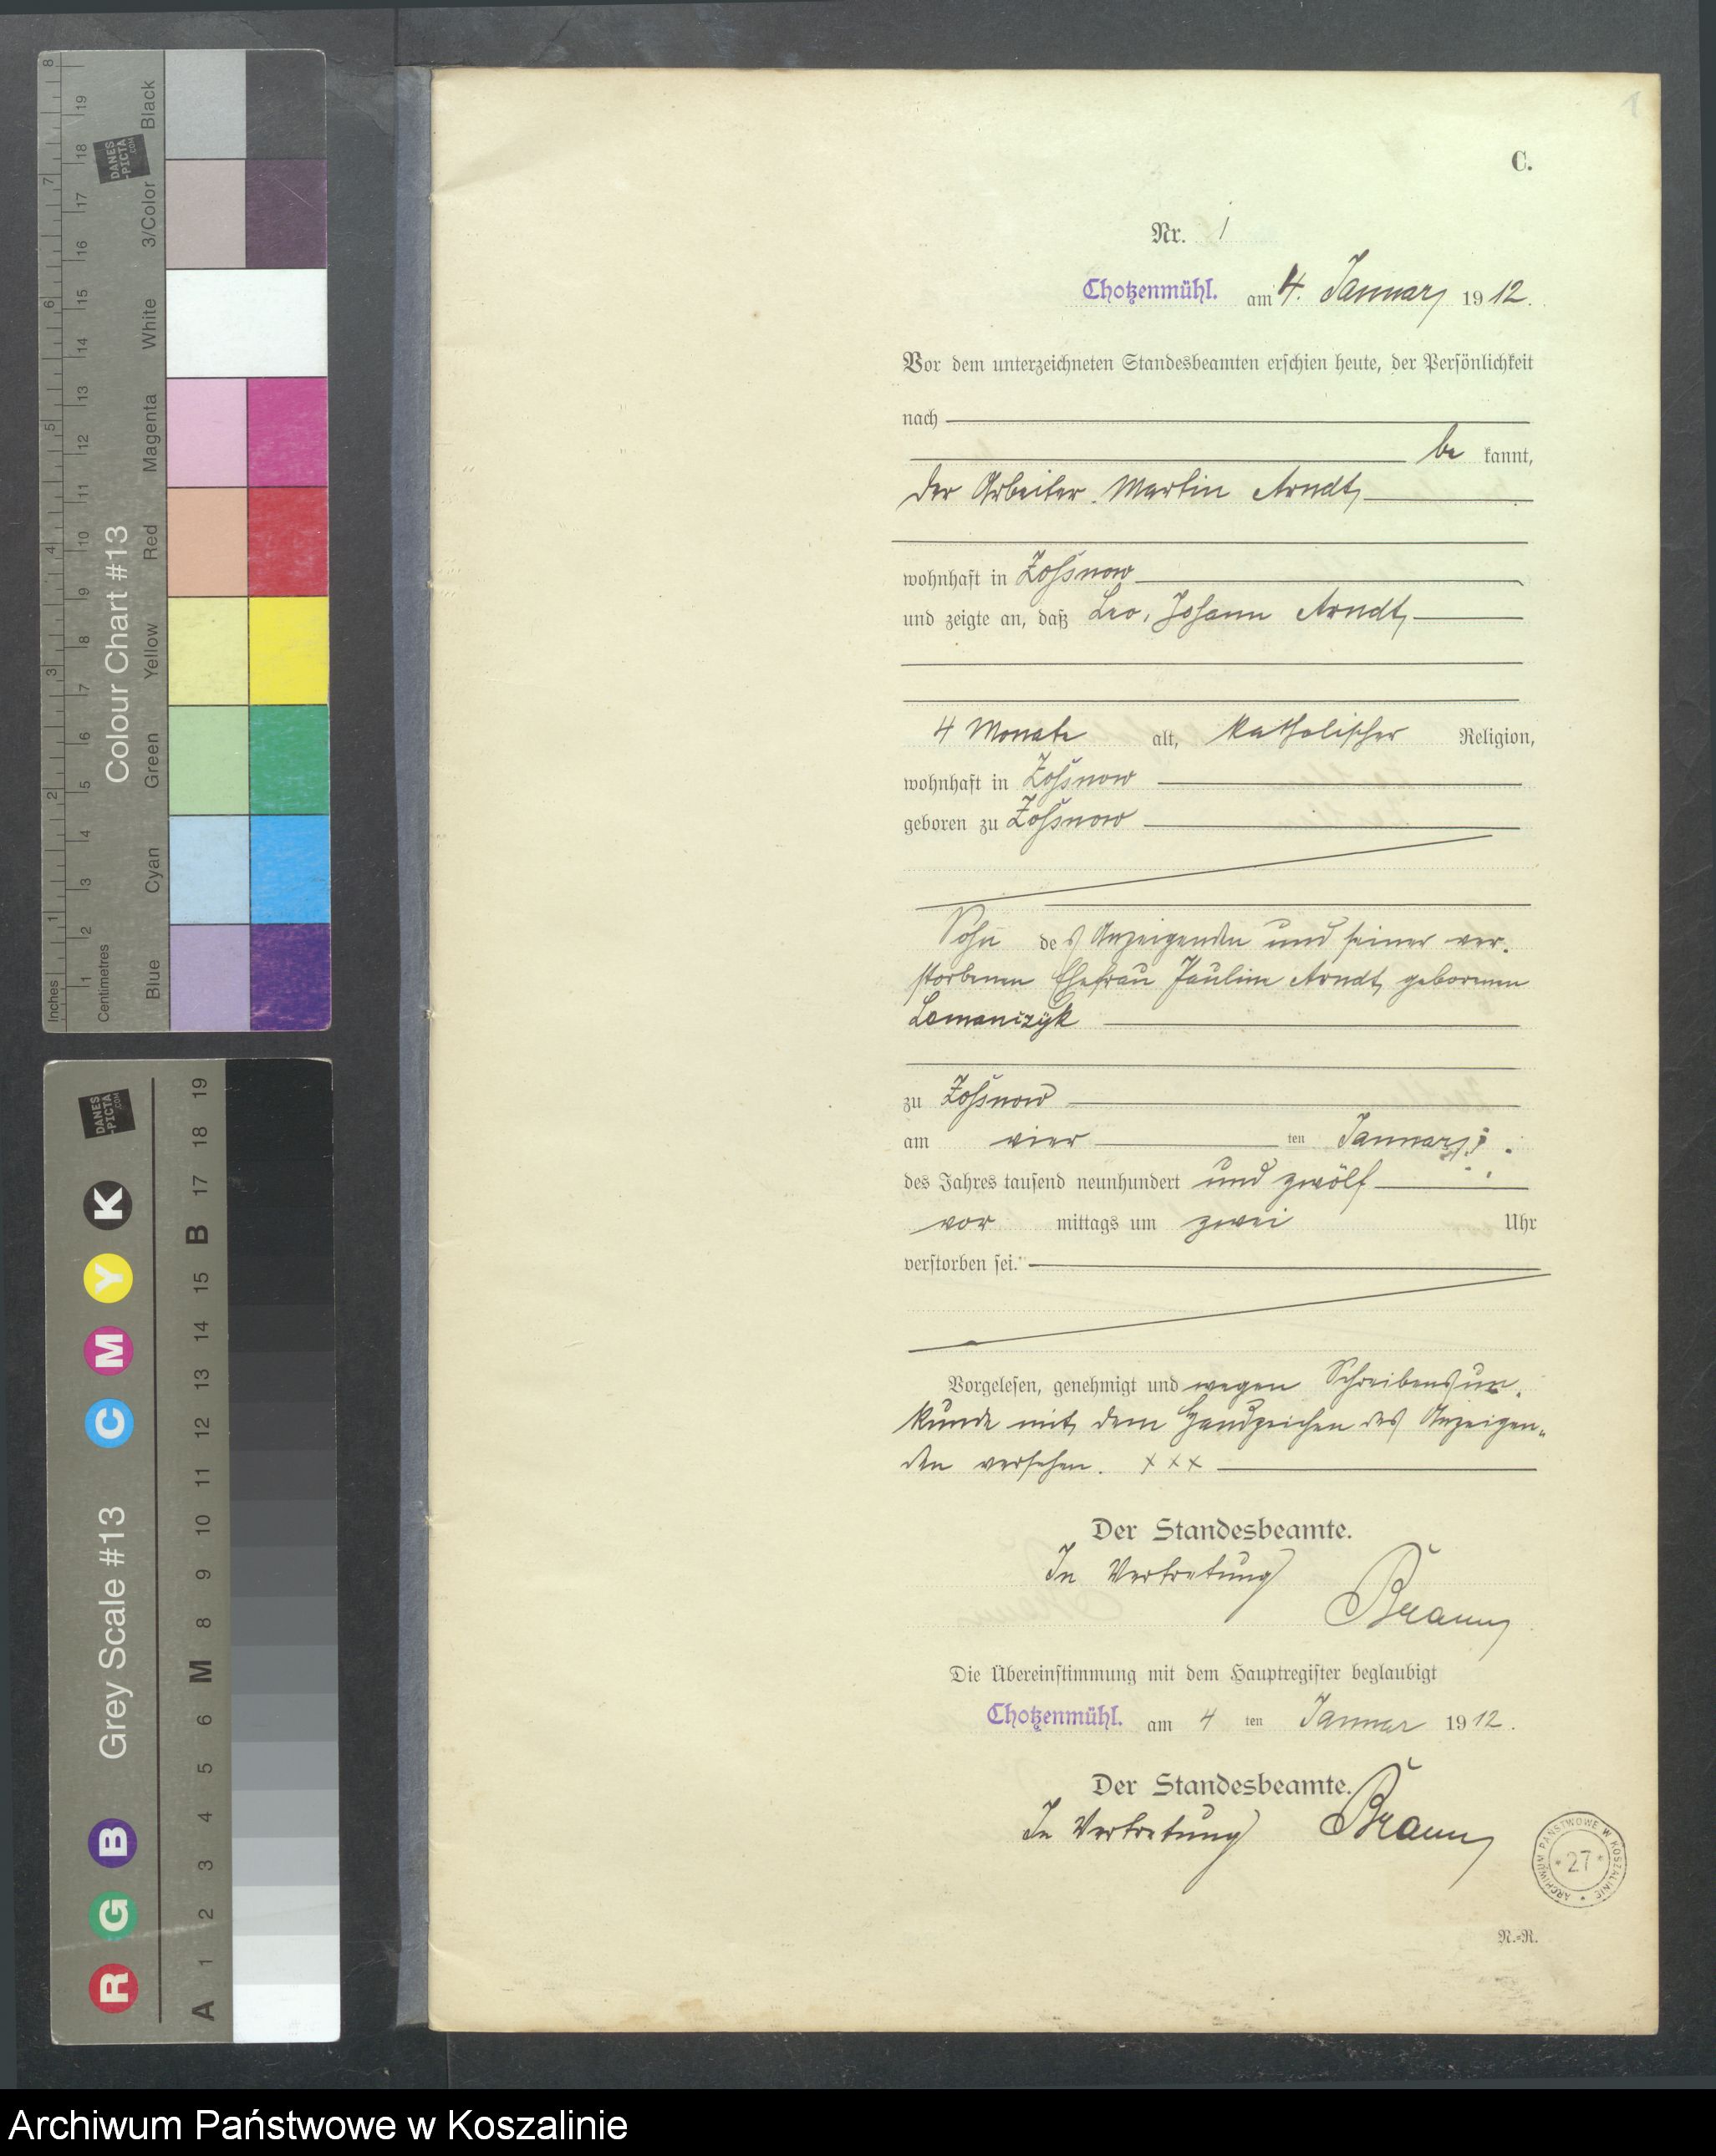 C.
Nr. 1
Chotzenmühl. am 4. Januar 1912.
Vor dem unterzeichneten Standesbeamten erschien heute, der Persönlichkeit
nach
be kannt,
der Arbeiter Martin Arndt,
wohnhaft in Zossnow
und zeigte an, daß Leo, Johann Arndt,
4 Monate alt, katholischer Religion,
wohnhaft in Zossnow
geboren zu Zossnow
Sohn des Anzeigenden und seiner ver-
storbenen Ehefrau Pauline Arndt, geborenen
Lomanczyk
zu Zossnow
am vier ten Januar
des Jahres tausend neunhundert und zwölf
vor mittags um zwei Uhr
verstorben sei.
Vorgelesen, genehmigt und wegen Schreibensun-
kunde mit dem Handzeichen des Anzeigen-
den versehen. x x x
Der Standesbeamte.
In Vertretung
Braun
Die Übereinstimmung mit dem Hauptregister beglaubigt
Chotzenmühl. am 4 ten Januar 1912.
Der Standesbeamte.
In Vertretung Braun
ARCHIWUM PAŃSTWOWE W KOSZALINIE
* 27 *
N.=R.
Colour Chart #13
Black
3/Color
White
Magenta
Red
Yellow
Green
Cyan
Blue
Inches
Centimetres
8 7 6 5 4 3 2 1
19 18 17 16 15 14 13 12 11 10 9 8 7 6 5 4 3 2 1
DANES
-PICTA
.COM
Grey Scale #13
DANES
-PICTA
.COM
R G B C M Y K
A 1 2 3 4 5 6 M 8 9 10 11 12 13 14 15 B 17 18 19
Archiwum Państwowe w Koszalinie